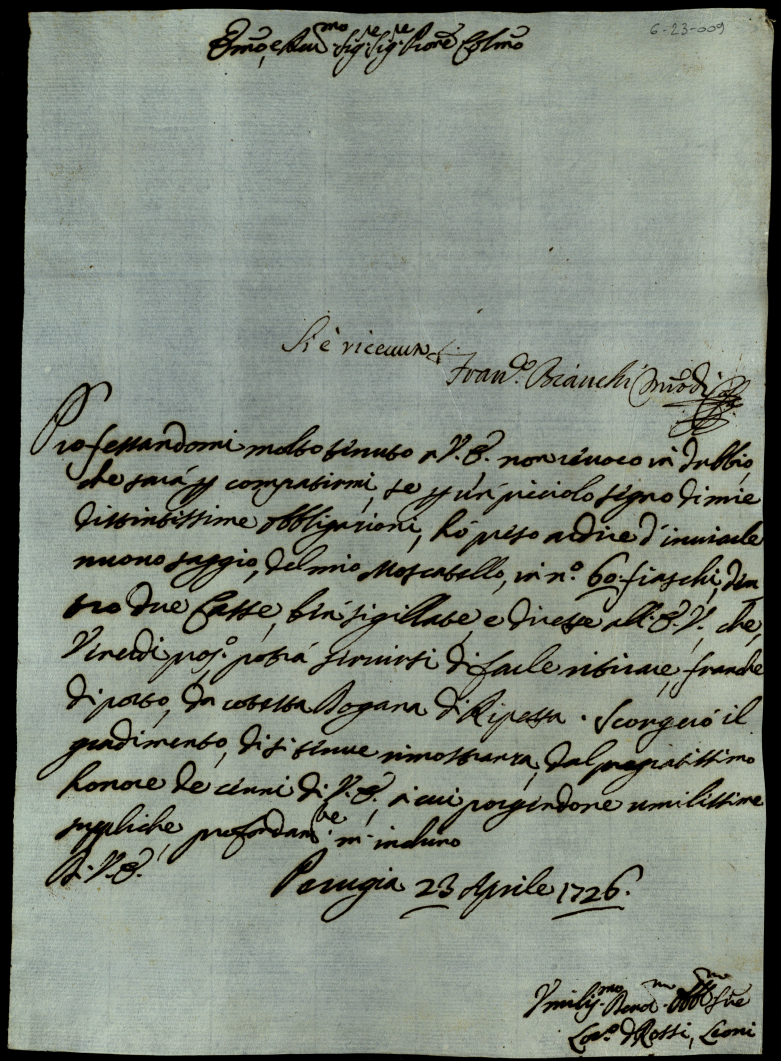 6-23-009
Emo, e Rmo Sigre Sigre Prone Colmo
Si è riceuuta
Franco Bianchi
Professandomi molto tenuto a V. E. non riuoco in dubbio,
che sarà p compatirmi, se p un picciolo segno di mie
distintissime obbligazioni, hò preso ardire d'inuiarle
nuouo saggio, del mio Moscatello, in no. 60 fiaschi, den
tro due Casse, ben sigillate, e dirette all' E. V., che,
Venerdi pros.o potrà seruirsi di farle ritirare, franche
di porto, da cotesta Dogana di Ripetta. Scorgerò il
gradimento, di si tenue rimostranza, dal pregiatissimo
honore de cenni di V. E., a cui porgendone umilissime
suppliche, profondamte m'inchino
D. V. E.
Perugia 23 Aprile 1726.
Vmilismo Deuo Obbmo Sre
de Rossi, Leoni